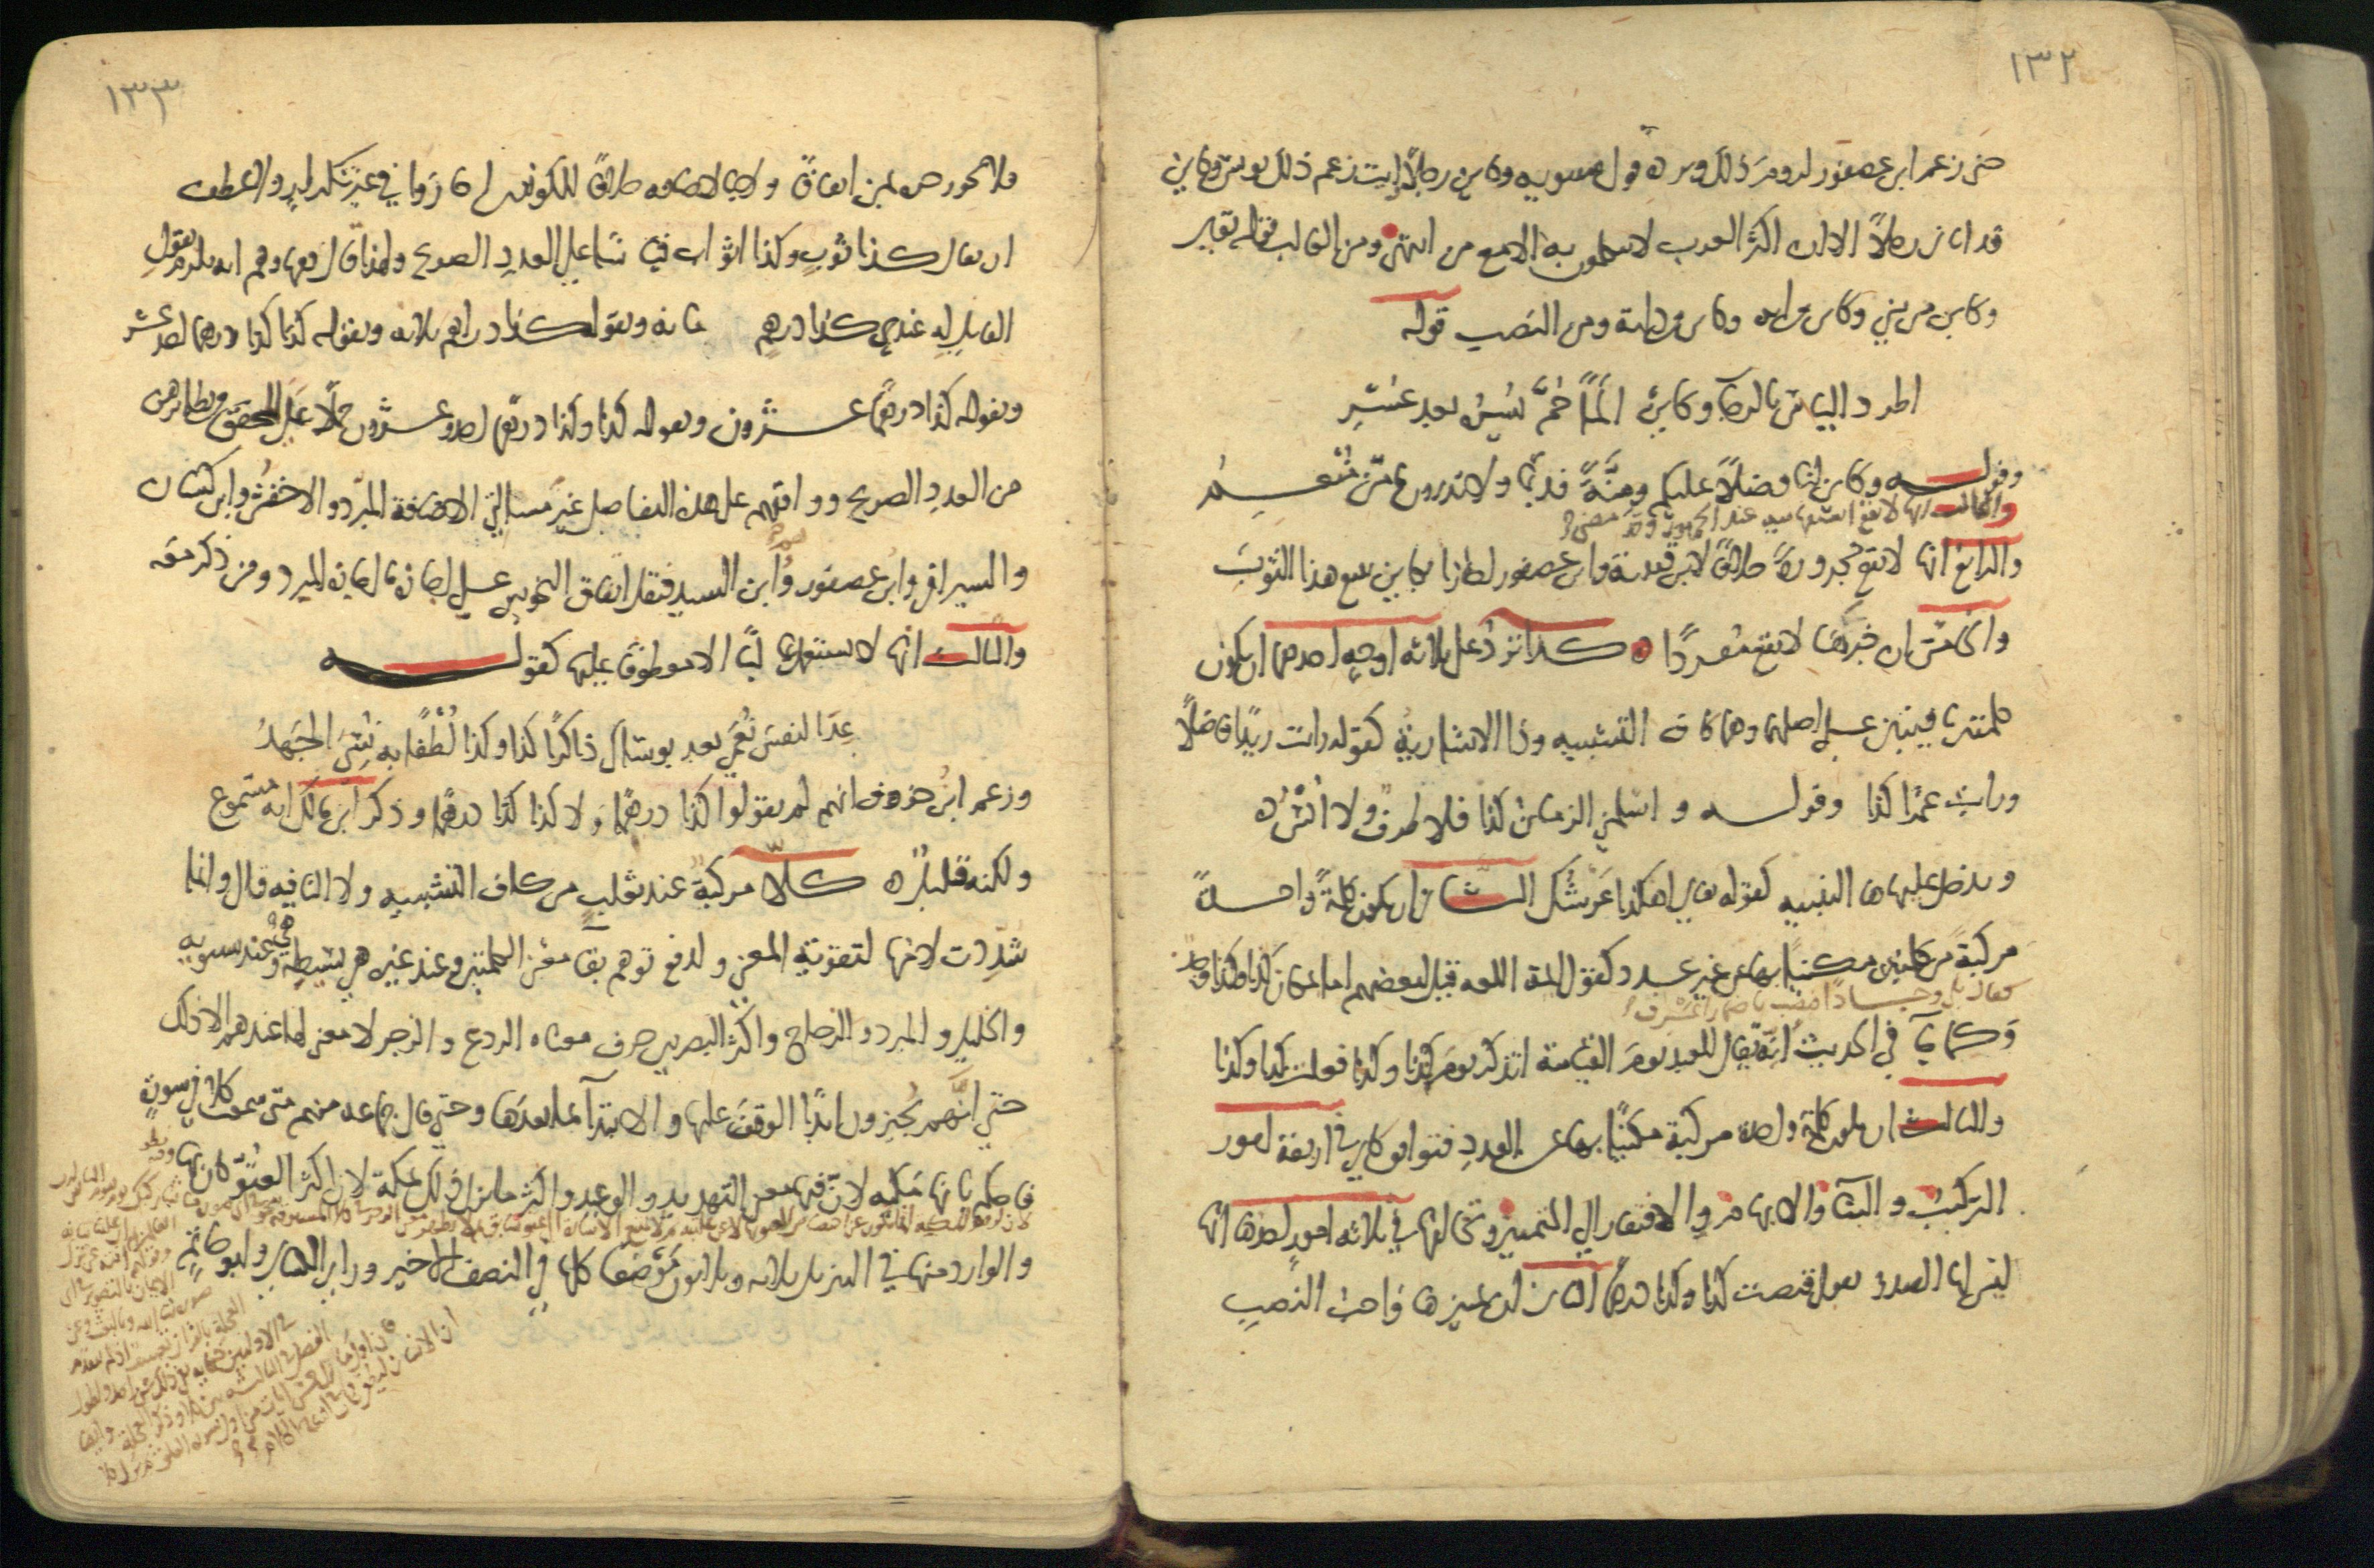 ١٣٢
حتى زعم ابن عصفور لزوم ذلك ويرده قول سيبويه وكاين رجلا رايت زعم ذلك يونس وكاين
قد اتاني رجلا الا ان اكثر العرب لا يتكلمون به الا مع من انتهى ومن الغالب قوله تعالى
وكاين من نبي وكاين من اية وكاين من دابة ومن النصب قوله
اطرد الياس بالرجا وكاين الما حم يسره بعد عسر
وقوله وكاين لنا فضلا عليكم ومنة قديما ولا تدرون ما من منعم
والثالث انها لا تقع استفهامية عند الجمهور وقد مضى
والرابع انها لا تقع مجرورة خلافا لابن قتيبة وابن عصفور اجازا بكاين تبيع هذا الثوب
والخامس ان خبرها لا يقع مفردا كذا ترد على ثلاثة اوجه احدها ان يكون
كلمتين باقيتين على اصلهما وهما كاف التشبيه وذا الاشارية كقوله رايت زيدا فاضلا
ورايت عمرا كذا وقوله واسلمني الزمان كذا فلا طرب ولا انس
ويدخل عليها ها التنبيه كقوله تعالى اهكذا عرشك الثاني ان يكون كلمة واحدة
مركبة من كلمتين مكنيا بها عن غير عدد كقول ايمة اللغة قيل لبعضهم اما بمكان كذا وكذا وجذ
فقال بلى وجاذا فنصب باضمار اعرف
وكما جا في الحديث انه يقال للعبد يوم القيامة اتذكر يوم كذا وكذا فعلت كذا وكذا
والثالث ان يكون كلمة واحدة مركبة مكنيا بها عن العدد فتوافق كاين في اربعة امور
التركيب والبنا والابهام والافتقار الى التمييز وتخالفها في ثلاثة امور احدها انها
ليس لها الصدر تقول قبضت كذا وكذا درهما الثاني ان تمييزها واجب النصب
١٣٣
فلا يجوز جره بمن اتفاقا ولا بالاضافة خلافا للكوفيين اجازوا في غير تكرار ولا عطف
ان يقال كذا ثوب وكذا اثواب قياسا على العدد الصريح ولهذا قال فقهاوهم انه يلزم بقول
القايل له عندي كذا درهم ماية وبقوله كذا دراهم ثلاثة وبقوله كذا كذا درهما احد عشر
وبقوله كذا درهما عشرون وبقوله كذا وكذا درهما احد وعشرون حملا على المحقق من نظايرهن
من العدد الصريح ووافقهم على هذه التفاصيل غير مسالتي الاضافة المبرد والاخفش وابن كيسان
والسيرافي وابن عصفور ووهم ابن السيد فنقل اتفاق النحويين على اجازة ما اجازه المبرد ومن ذكر معه
والثالث انها لا تستعمل غالبا الا معطوفا عليها كقوله
عد النفس نعمى بعد بوساك ذاكرا كذا وكذا لطفا به نسي الجهد
وزعم ابن خروف انهم لم يقولوا كذا درهما ولا كذا كذا درهما وذكر ابن مالك انه مسموع
ولكنه قليل كلا مركبة عند ثعلب من كاف التشبيه ولا النافية قال وانما
شددت لامها لتقوية المعنى ولدفع توهم بقا معنى الكلمتين وعند غيره هي بسيطة وهي عند سيبويه
والخليل والمبرد والزجاج واكثر البصريين حرف معناه الردع والزجر لا معنى لها عندهم الا ذلك
حتى انهم يجيزون ابدا الوقف عليها والابتدا بما بعدها وحتى قال جماعة منهم متى سمعت كلا في سورة
فاحكم بانها مكية لان فيها معنى التهديد والوعيد واكثر ما نزل ذلك بمكة لان اكثر العتو كان بها
والوارد منها في التنزيل ثلاثة وثلاثون موضعا كلها في النصف الاخير وراى الكسايي وابو حاتم